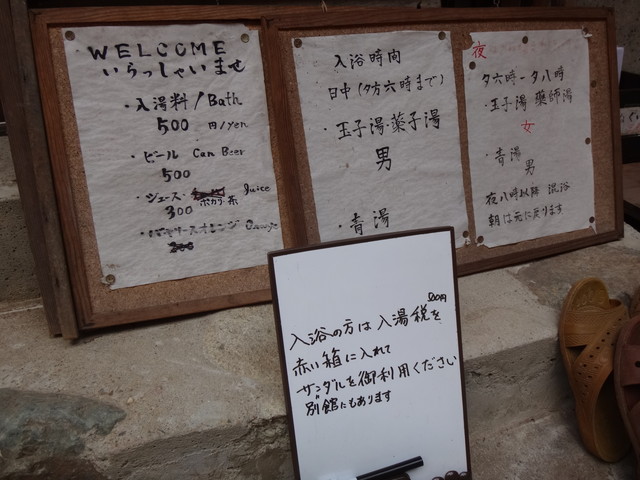 WELCOME
いらっしゃいませ
・入湯料/Bath
500 円/yen
・ビール Can Beer
500
・ジュース・ Juice
300 ポカリ・茶
オレンジ Orange
入浴時間
日中(夕方六時まで)
・玉子湯・薬子湯
男
・青湯
夜
夕六時ータ八時
・玉子湯 薬師湯
女
・青湯
男
夜八時以降 混浴
朝は元に戻ります
500円
入浴の方は入湯税を
赤い箱に入れて
サンダルを御利用ください
別館にもあります